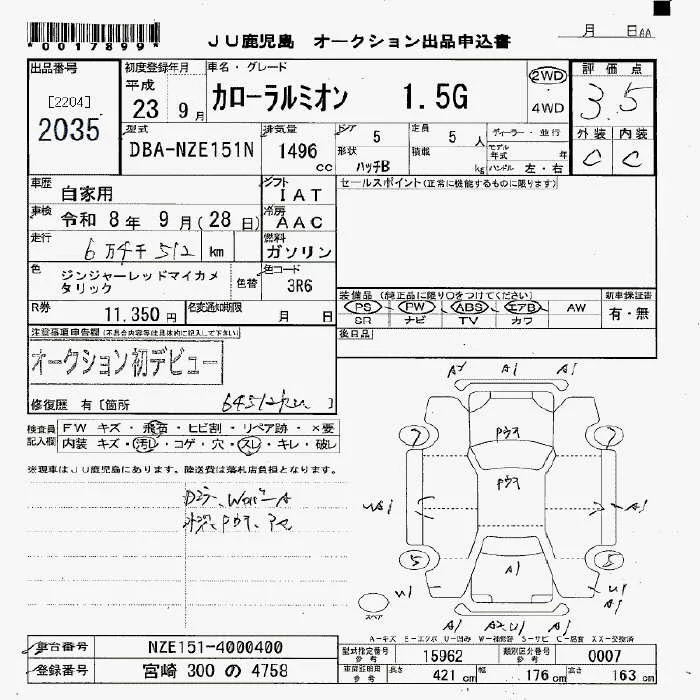 *0017899*
JU鹿児島 オークション出品申込書
月 日AA
出品番号
[2204]
2035
初度登録年月
平成
23 9月
車名・グレード
カローラルミオン 1.5G
2WD
4WD
評価点
3.5
外装 内装
C C
型式
DBA-NZE151N
排気量
1496
cc
ドア 5
形状 ハッチB
定員 5 人
積載 kg
ディーラー・並行
モデル年式 年
ハンドル 左・右
車歴
自家用
シフト
IAT
セールスポイント(正常に機能するものに限ります)
車検
令和 8年 9月(28日)
冷房
AAC
走行
6万4千512 km
燃料
ガソリン
色
ジンジャーレッドマイカメ
タリック
色替
色コード
3R6
R券
11,350円
名変通知期限
月 日
装備品(純正品に限り○をつけてください)
PS・PW・ABS・エアB・AW
SR ナビ TV カワ
新車保証書
有・無
後日品
注意事項申告欄(不具合内容等は具体的に記入して下さい)
オークション初デビュー
修復歴 有〔箇所 64512km〕
検査員
記入欄
FW キズ・飛石・ヒビ割・リペア跡・×要
内装 キズ・汚レ・コゲ・穴・スレ・キレ・破レ
※現車はJU鹿児島にあります。陸送費は落札店負担となります。
A2 A1 A1
Pウス
Pウス
7 7
A1
5 5
A1
U1 U1
A1
A1 A2U1 A1
スペア
A-キズ E-エクボ U-凹み W-補修跡 S-サビ C-腐食 XX-交換済
車台番号
NZE151-4000400
登録番号
宮崎 300 の 4758
型式指定番号
参考
15962
類別区分番号
参考
0007
車庫証明用
参考
長さ 421 cm
幅 176 cm
高さ 163 cm